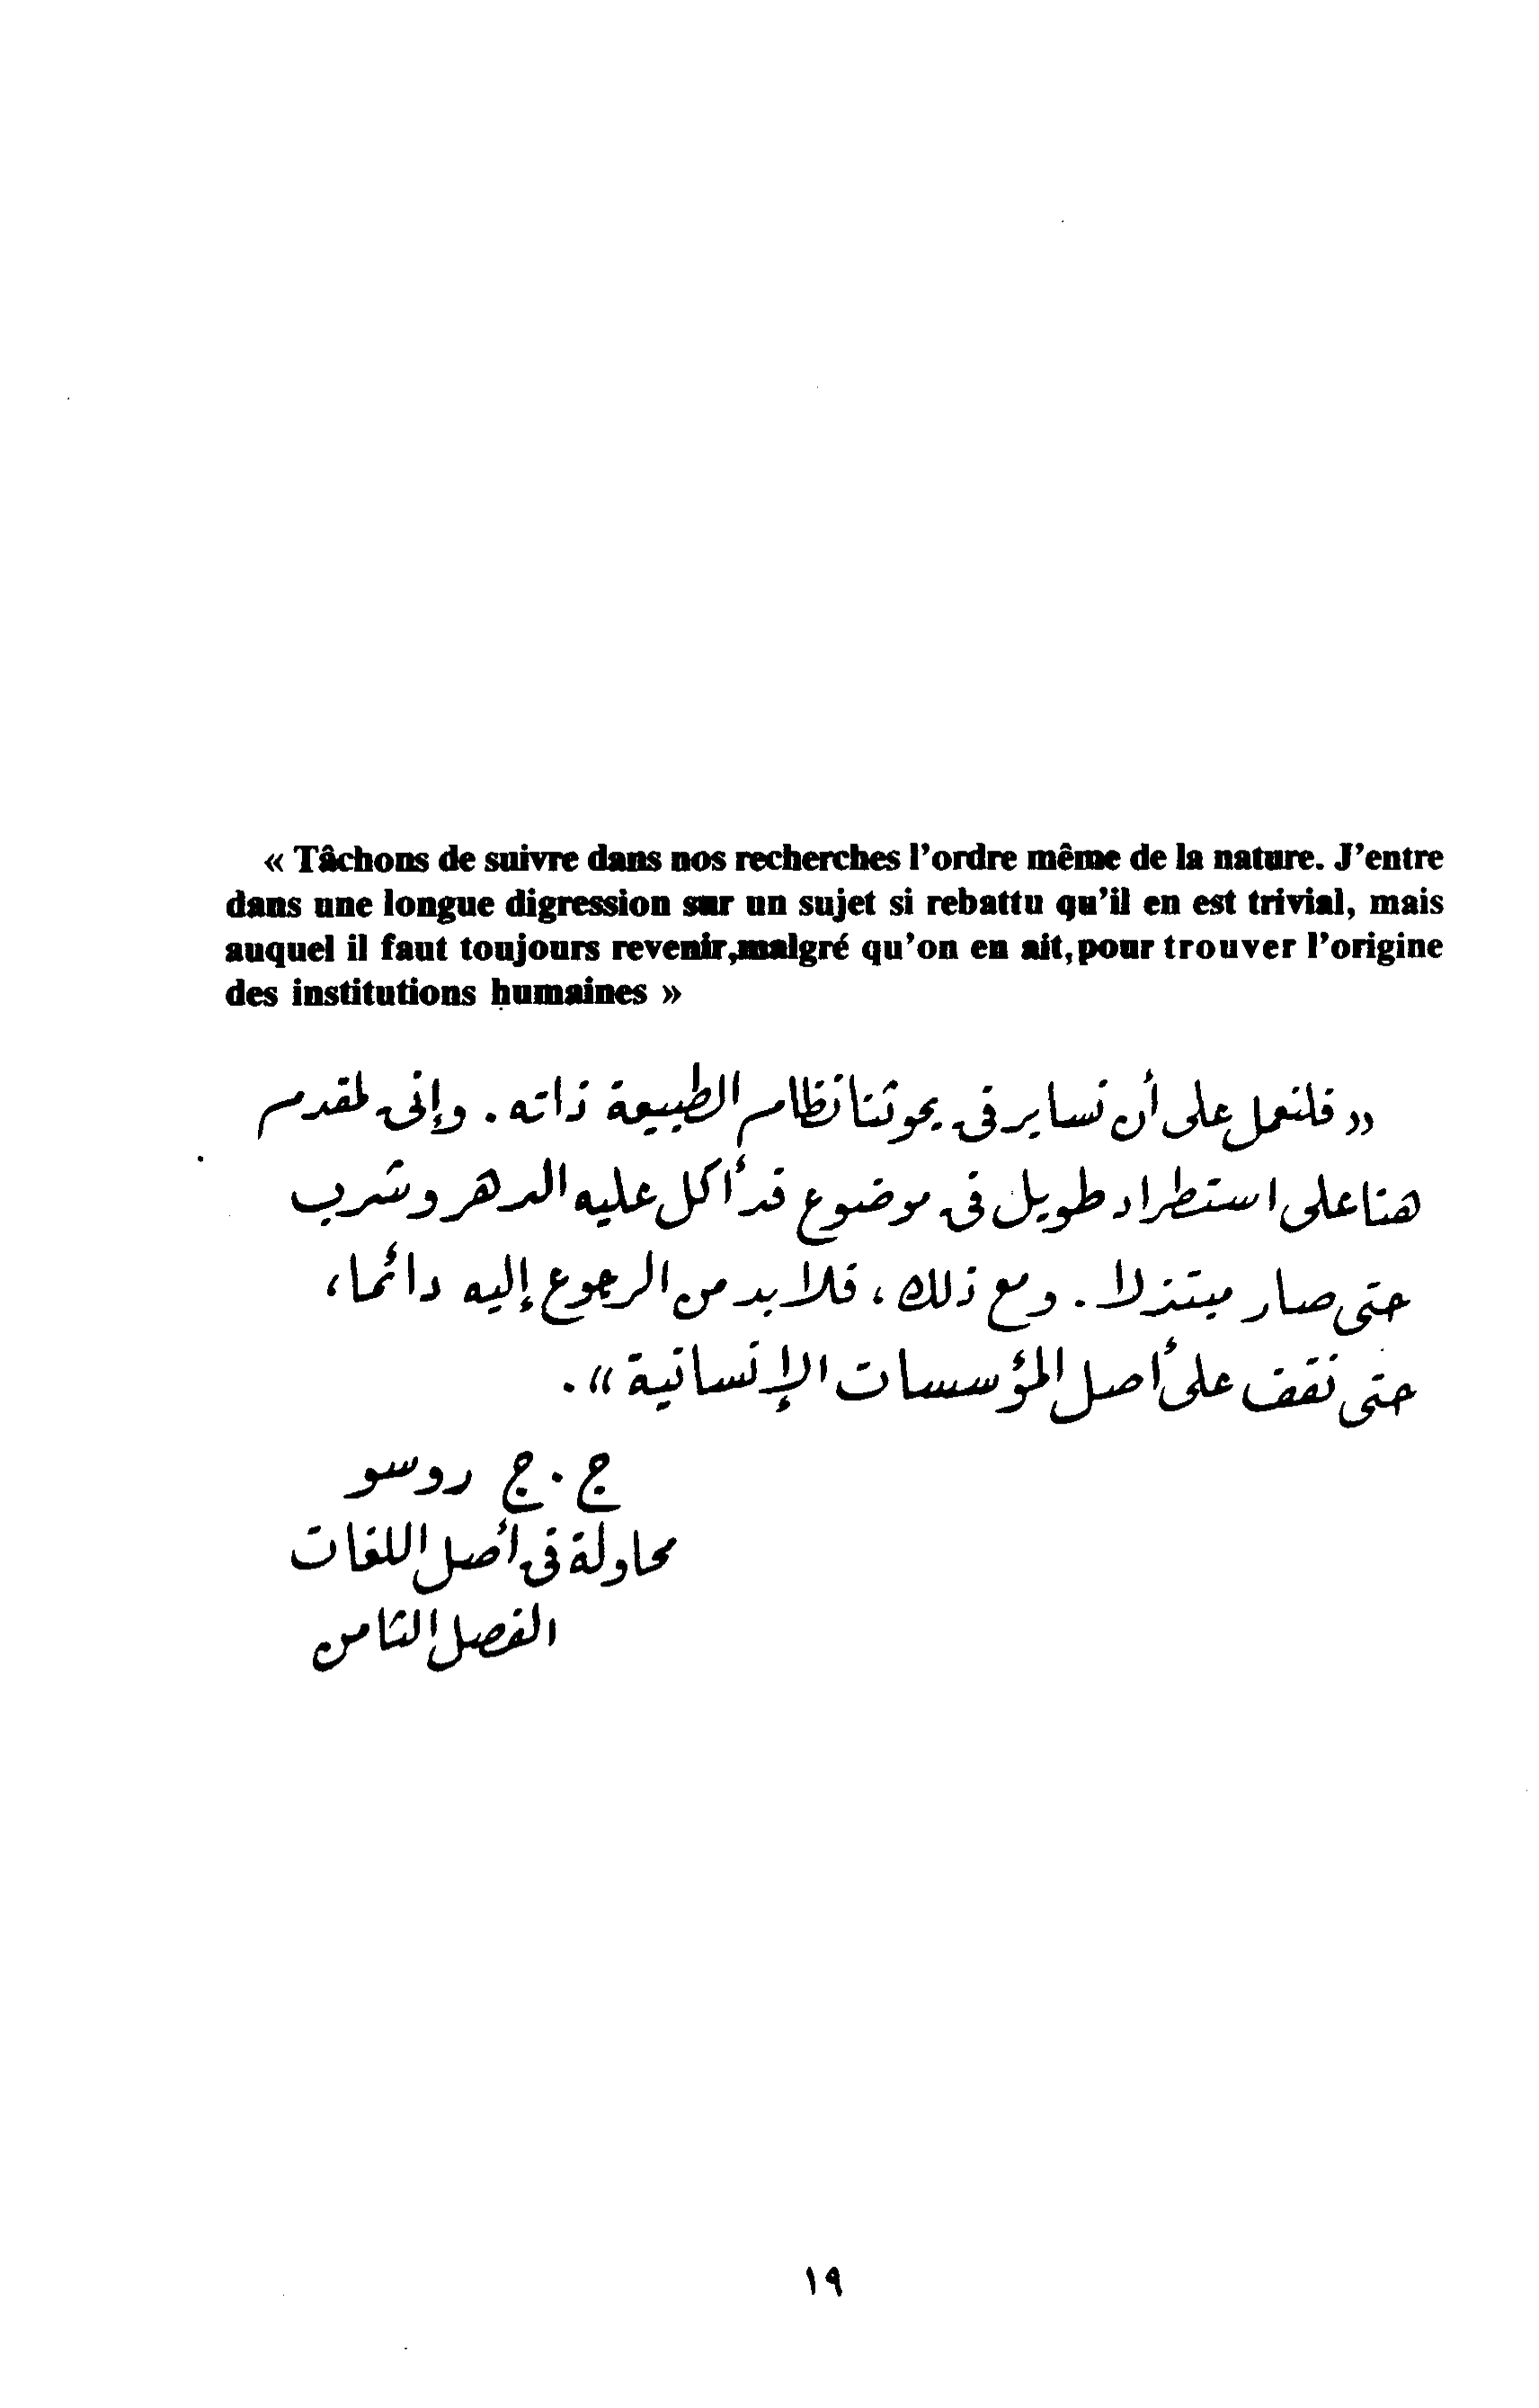 « Tâchons de suivre dans nos recherches l’ordre même de la nature. J’entre
dans une longue digression sur un sujet si rebattu qu’il en est trivial, mais
auquel il faut toujours revenir,malgré qu’on en ait,pour trouver l’origine
des institutions humaines »
«فلنعمل على أن نساير فى بحوثنا نظام الطبيعة ذاته . وإنى لمقدم
هنا على استطراد طويل فى موضوع قد أكل عليه الدهر وشرب
حتى صار مبتذلا . ومع ذلك ، فلا بد من الرجوع إليه دائما ،
حتى نقف على أصل المؤسسات الإنسانية» .
ج . ج روسو
محاولة فى أصل اللغات
الفصل الثامن
١٩